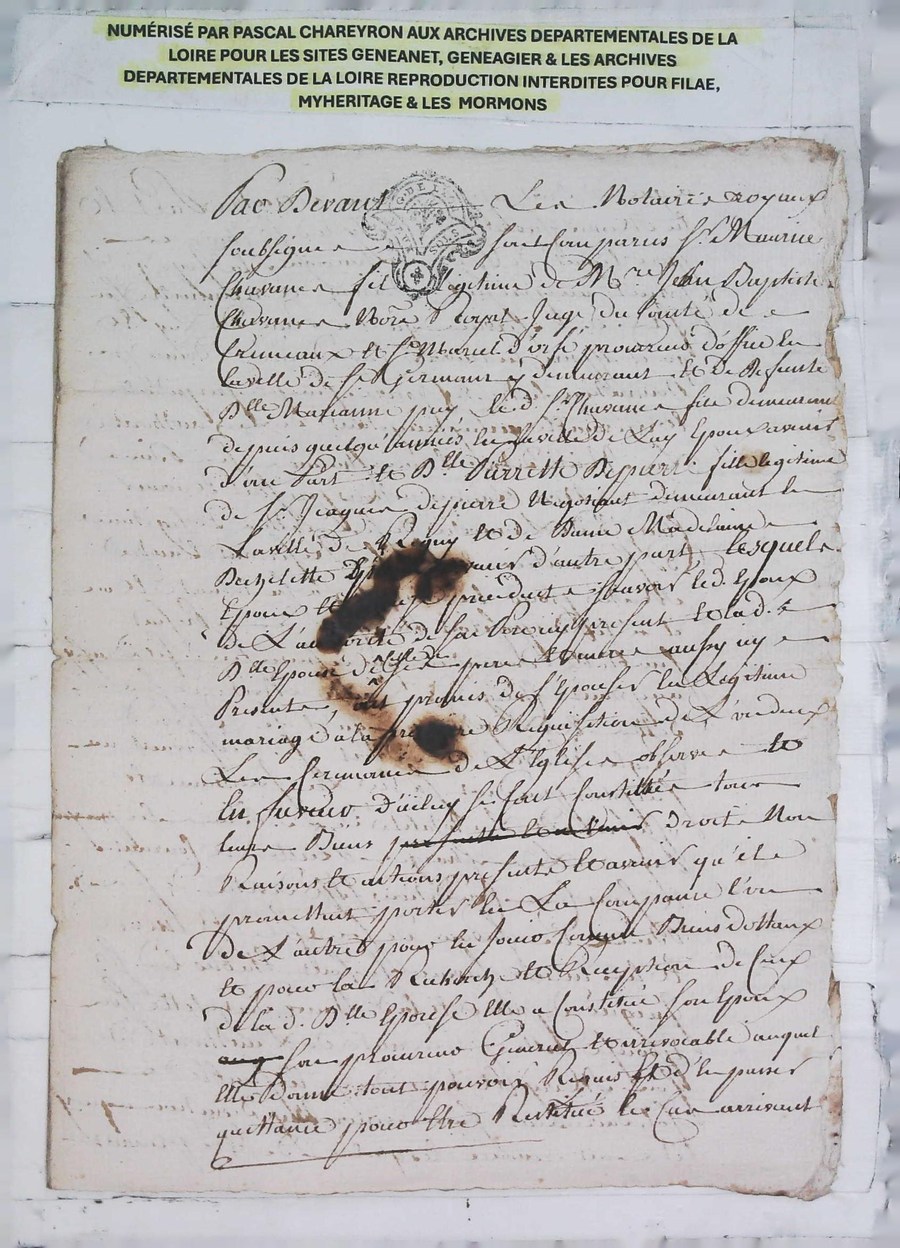 NUMÉRISÉ PAR PASCAL CHAREYRON AUX ARCHIVES DEPARTEMENTALES DE LA
LOIRE POUR LES SITES GENEANET, GENEAGIER & LES ARCHIVES
DEPARTEMENTALES DE LA LOIRE REPRODUCTION INTERDITES POUR FILAE,
MYHERITAGE & LES MORMONS
Par Devant Les Notaires Royaux
soubsignes sont Comparus Sr Maurice
Chavanne fils Legitime de Mre Jean Baptiste
Chavanne Nore Royal Juge du Comté de
Cremeaux et St Marcel d'urfé procureur d'office en
la ville de St Germain y demeurant et de Defunte
Dlle Marianne puy le d. Sr Chavanne fils demeurant
depuis quelqu'années en la ville de Epoux avenir
d'une Part et Dlle Pierrette Depierre fille legitime
de Sr Jacques depierre Negotiant demeurant en
La ville de Regny et de Dame Madelaine
d'autre part Lesquels
Epoux et procedant sçavoir le d. Epoux
de L'autorité de son Pere icy present et la d.
Dlle Epouse de celle de ses pere et mere aussy icy
Presents ont promis de s'Epouser en Legitime
mariage à la premiere Requisition de L'un deux
Les Ceremonies de L'Eglise observées et
En faveur d'icelluy se sont Constitués tous
leurs Biens presents et a venir Droits Nom
Raisons et actions presents et avenir qu'ils
promettent porter en La Compagnie l'un
de L'autre pour en jouir Comme Biens dottaux
et pour la Recherche et Reception de Ceux
de la d. Dlle Epouse Elle a Constitué son Epoux
son procureur General et irrevocable auquel
elle Donne tout pouvoir Requis et d'en passer
quittance pour Etre Restitué le Cas arrivant